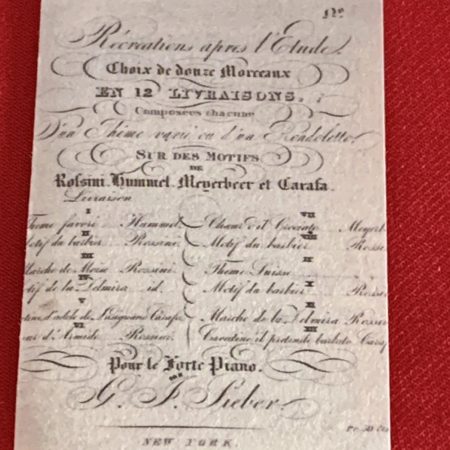 No
Récréations après l'Etude.
Choix de douze Morceaux
EN 12 LIVRAISONS,
Composées chacune
D'un Thême varié ou d'un Rondoletto,
SUR DES MOTIFS
DE
Rossini, Hummel, Meyerbeer et Carafa.
Livraison
I
Theme favori Hummel
II
Motif du barbier Rossini
III
Marche de Moise Rossini
IV
Motif de la Zelmira id.
V
VI
d'Armide Rossini
VII
Chœur d'il Crociato Meyerb
VIII
Motif du barbier Rossi
IX
Theme Suisse
X
Motif du barbier Rossi
XI
Marche de la Zelmira Rossin
XII
Cavatine il pretende barbato Caraf
Pour le Forte Piano.
PAR
G. J. Sieber.
Pr. 50 Cts
NEW YORK.